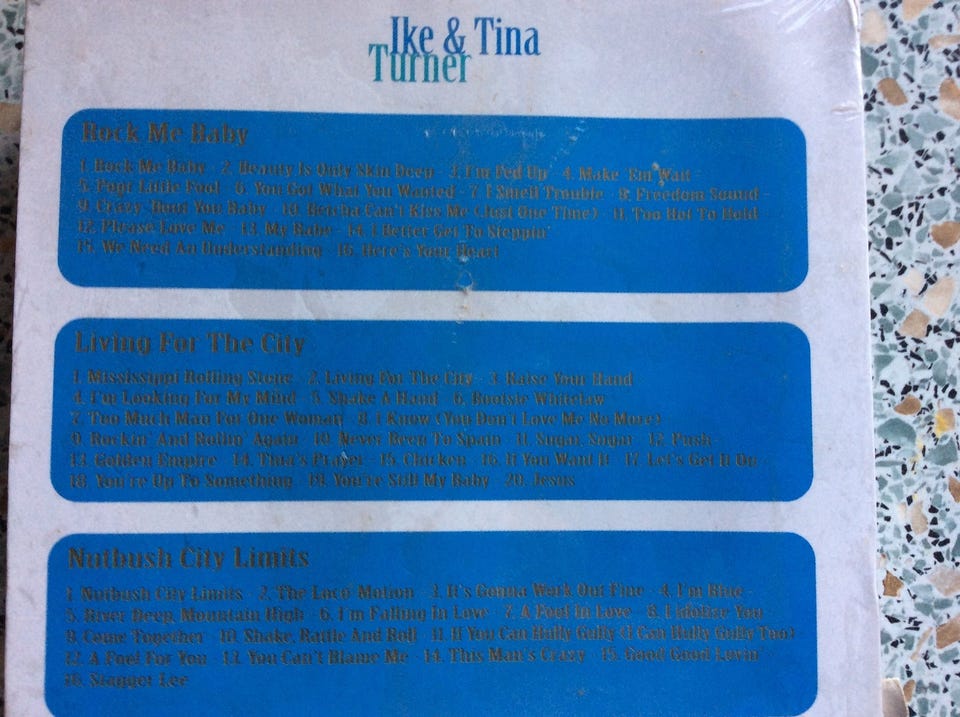 Ike & Tina
Turner
Rock Me Baby
1. Rock Me Baby · 2. Beauty Is Only Skin Deep · 3. I'm Fed Up · 4. Make 'Em Wait ·
5. Poor Little Fool · 6. You Got What You Wanted · 7. I Smell Trouble · 8. Freedom Sound ·
9. Crazy 'Bout You Baby · 10. Betcha Can't Kiss Me (Just One Time) · 11. Too Hot To Hold ·
12. Please Love Me · 13. My Babe · 14. I Better Get To Steppin'
15. We Need An Understanding · 16. Here's Your Heart
Living For The City
1. Mississippi Rolling Stone · 2. Living For The City · 3. Raise Your Hand
4. I'm Looking For My Mind · 5. Shake A Hand · 6. Bootsie Whitelaw
7. Too Much Man For One Woman · 8. I Know (You Don't Love Me No More)
9. Rockin' And Rollin' Again · 10. Never Been To Spain · 11. Sugar, Sugar · 12. Push ·
13. Golden Empire · 14. Tina's Prayer · 15. Chicken · 16. If You Want It · 17. Let's Get It On ·
18. You're Up To Something · 19. You're Still My Baby · 20. Jesus
Nutbush City Limits
1. Nutbush City Limits · 2. The Loco-Motion · 3. It's Gonna Work Out Fine · 4. I'm Blue ·
5. River Deep, Mountain High · 6. I'm Falling In Love · 7. A Fool In Love · 8. I Idolize You ·
9. Come Together · 10. Shake, Rattle And Roll · 11. If You Can Hully Gully (I Can Hully Gully Too)
12. A Fool For You · 13. You Can't Blame Me · 14. This Man's Crazy · 15. Good Good Lovin' ·
16. Stagger Lee